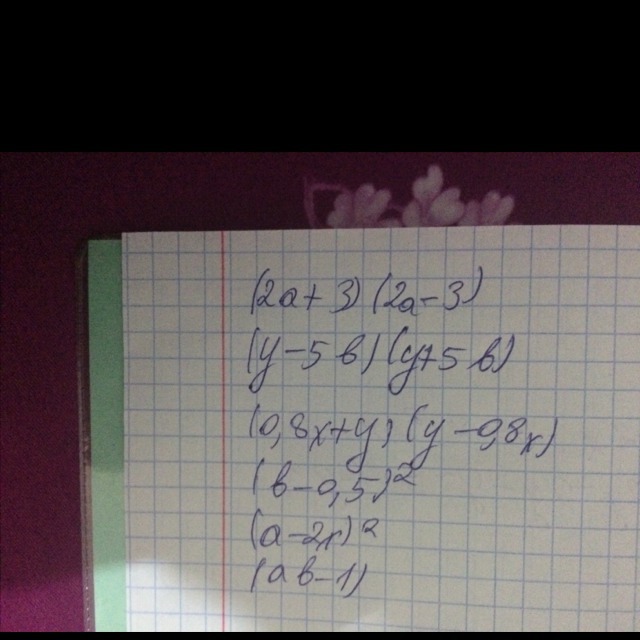 (2a+3)(2a-3)
(y-5b)(y+5b)
(0,8x+y)(y-0,8x)
(b-0,5)²
(a-2x)²
(ab-1)